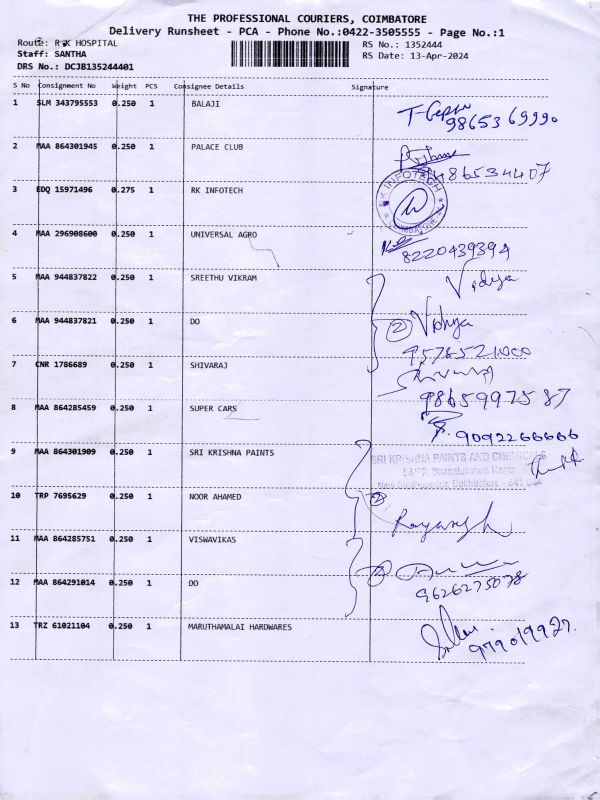 THE PROFESSIONAL COURIERS, COIMBATORE
Delivery Runsheet - PCA - Phone No.:0422-3505555 - Page No.:1
Route: R K HOSPITAL
Staff: SANTHA
DRS No.: DCJB135244401
RS No.: 1352444
RS Date: 13-Apr-2024
S No Consignment No Weight PCS Consignee Details Signature
1 SLM 343795553 0.250 1 BALAJI
9865369990
2 MAA 864301945 0.250 1 PALACE CLUB
3 EDQ 15971496 0.275 1 RK INFOTECH
RK INFOTECH
4 MAA 296908600 0.250 1 UNIVERSAL AGRO
8220439394
5 MAA 944837822 0.250 1 SREETHU VIKRAM
Vidya
6 MAA 944837821 0.250 1 DO
2 Vidya
9576521000
7 CNR 1786689 0.250 1 SHIVARAJ
9865997587
8 MAA 864285459 0.250 1 SUPER CARS
9092266666
9 MAA 864301909 0.250 1 SRI KRISHNA PAINTS
SRI KRISHNA PAINTS AND CHEMICALS
10 TRP 7695629 0.250 1 NOOR AHAMED
2
11 MAA 864285751 0.250 1 VISWAVIKAS
12 MAA 864291014 0.250 1 DO
2
9626275078
13 TRZ 61021104 0.250 1 MARUTHAMALAI HARDWARES